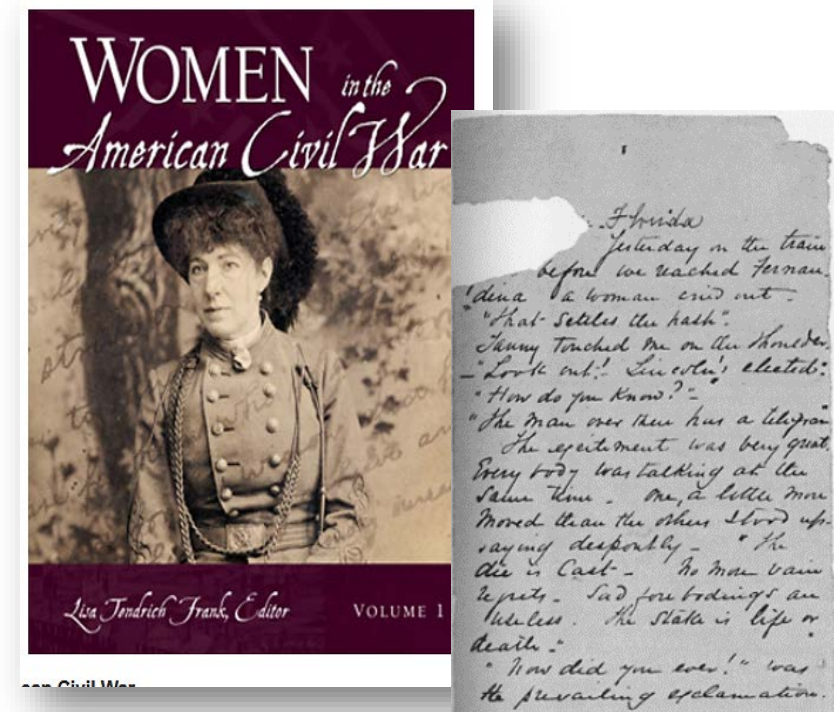 WOMEN in the
American Civil War
Lisa Tendrich Frank, Editor
VOLUME 1
Civil War
Florida
Yesterday on the train
before we reached Fernan
dina a woman cried out -
"That settles the hash".
Tanny touched me on the shoulder.
- "Look out! - Lincoln's elected".
"How do you know?" -
"The man over there has a telegram
The excitement was very great.
Every body was talking at the
same time. One, a little more
moved than the others stood up -
saying despontly - "The
die is cast - No more vain
regrets. Sad fore bodings are
useless. The stake is life or
death -"
"Now did you ever!" was
the prevailing exclamation.